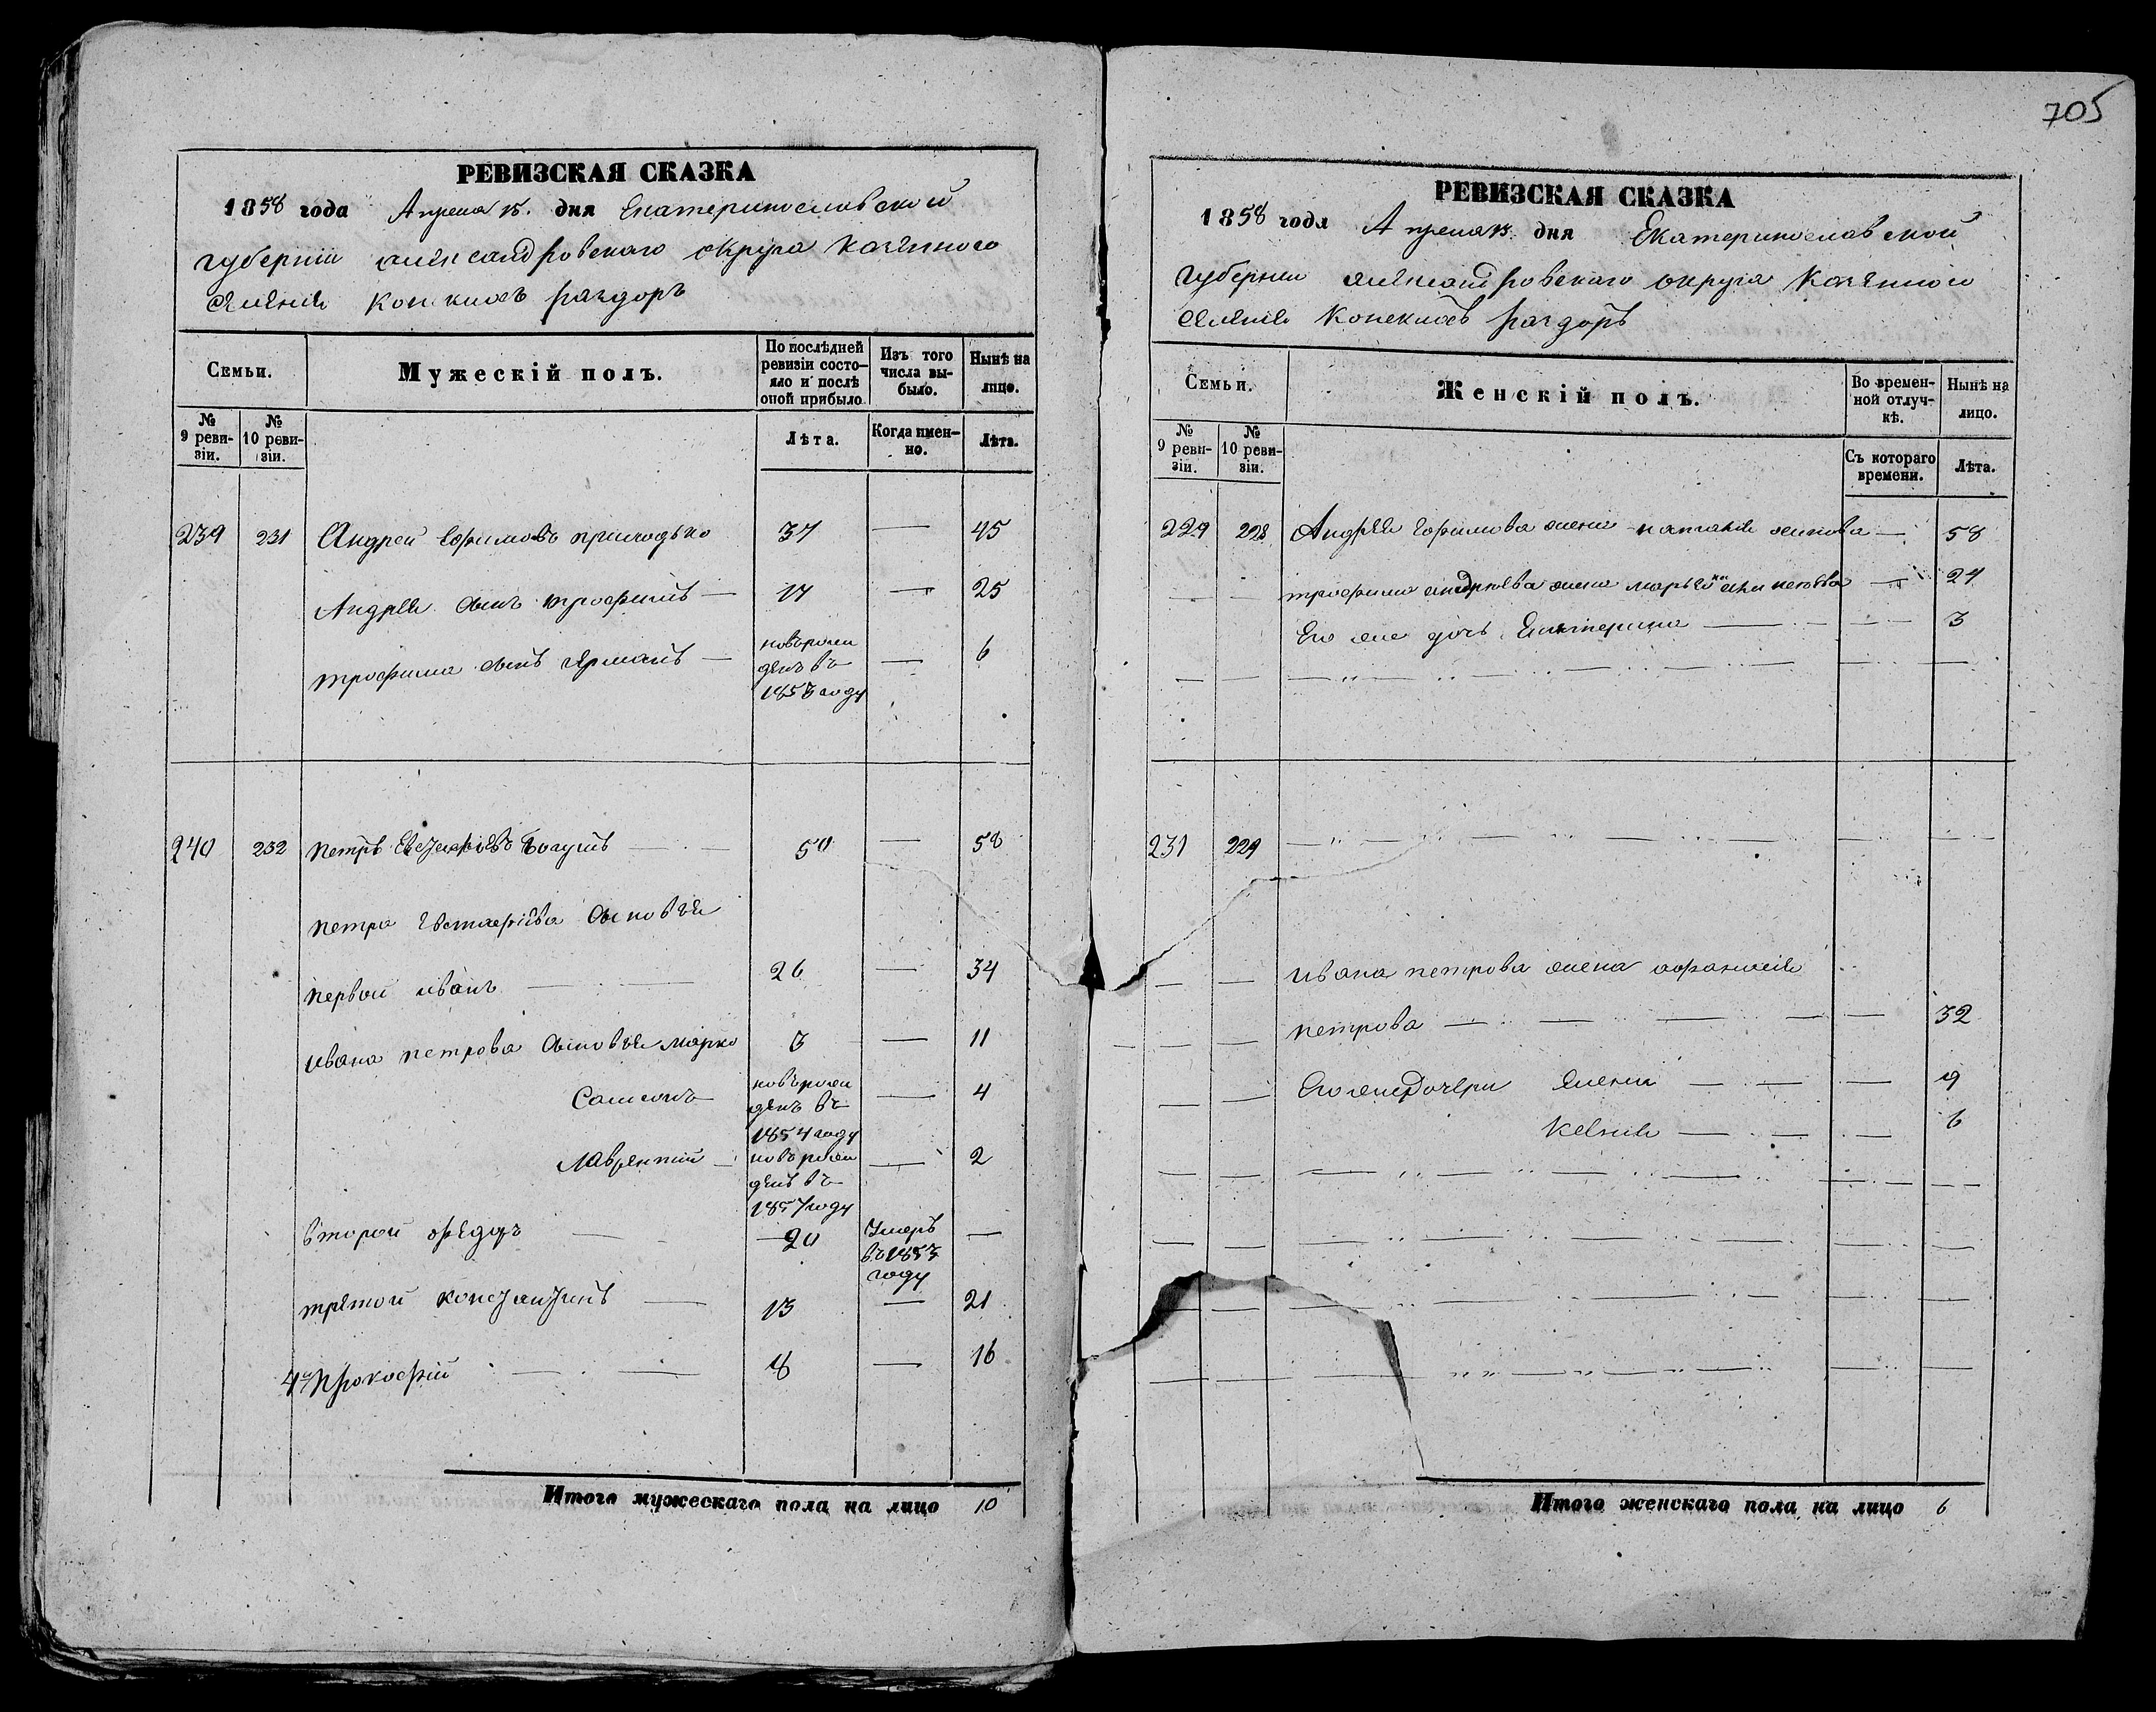 РЕВИЗСКАЯ СКАЗКА
1858 года Апреля 15. дня Екатеринославской
губерніи александровскаго округа казенного
селенія Конскихъ раздоръ
Семьи.
Мужескій полъ.
По послѣдней ревизіи состо-
яло и послѣ оной прибыло
Изъ того числа вы-
было.
Нынѣ на лицо.
№ 9 реви-
зіи.
№ 10 реви-
зіи.
Лѣта.
Когда имен-
но.
Лѣта.
239 231 Андрей Ефимовъ приходько 37 — 45
Андрея сынъ трофимъ — 17 — 25
трофима сынъ Ярмакъ — новорож
денъ въ
1853 году — 6
240 232 петръ Евстафіевъ Богунъ 50 — 58
петра Евстафіева сыновья
первой иванъ 26 — 34
ивана петрова сыновья марко 3 — 11
Самсонъ новорож
денъ въ
1854 году — 4
Лаврентий новорож
денъ въ
1857 году — 2
второй федоръ 20 Умеръ
въ 1853
году —
третой константинъ — 13 — 21
4й Прокофій 8 — 16
Итого мужескаго пола на лицо 10
705
РЕВИЗСКАЯ СКАЗКА
1858 года Апреля 15. дня Екатеринославской
губернии александровскаго округа Казенного
селенія Конскихъ раздоръ
Семьи.
Женскій полъ.
Во времен-
ной отлуч-
кѣ.
Нынѣ на лицо.
№ 9 реви-
зіи.
№ 10 реви-
зіи.
Съ котораго времени.
Лѣта.
229 228 Андрея Ефимова жена наталія осипова — 58
трофима андреева жена марья — 24
Его же дочь Екатерина — 3
231 229
ивана петрова жена афанасія
петрова — 32
Его же дочери Елена — 9
Ксенія — 6
Итого женскаго пола на лицо 6